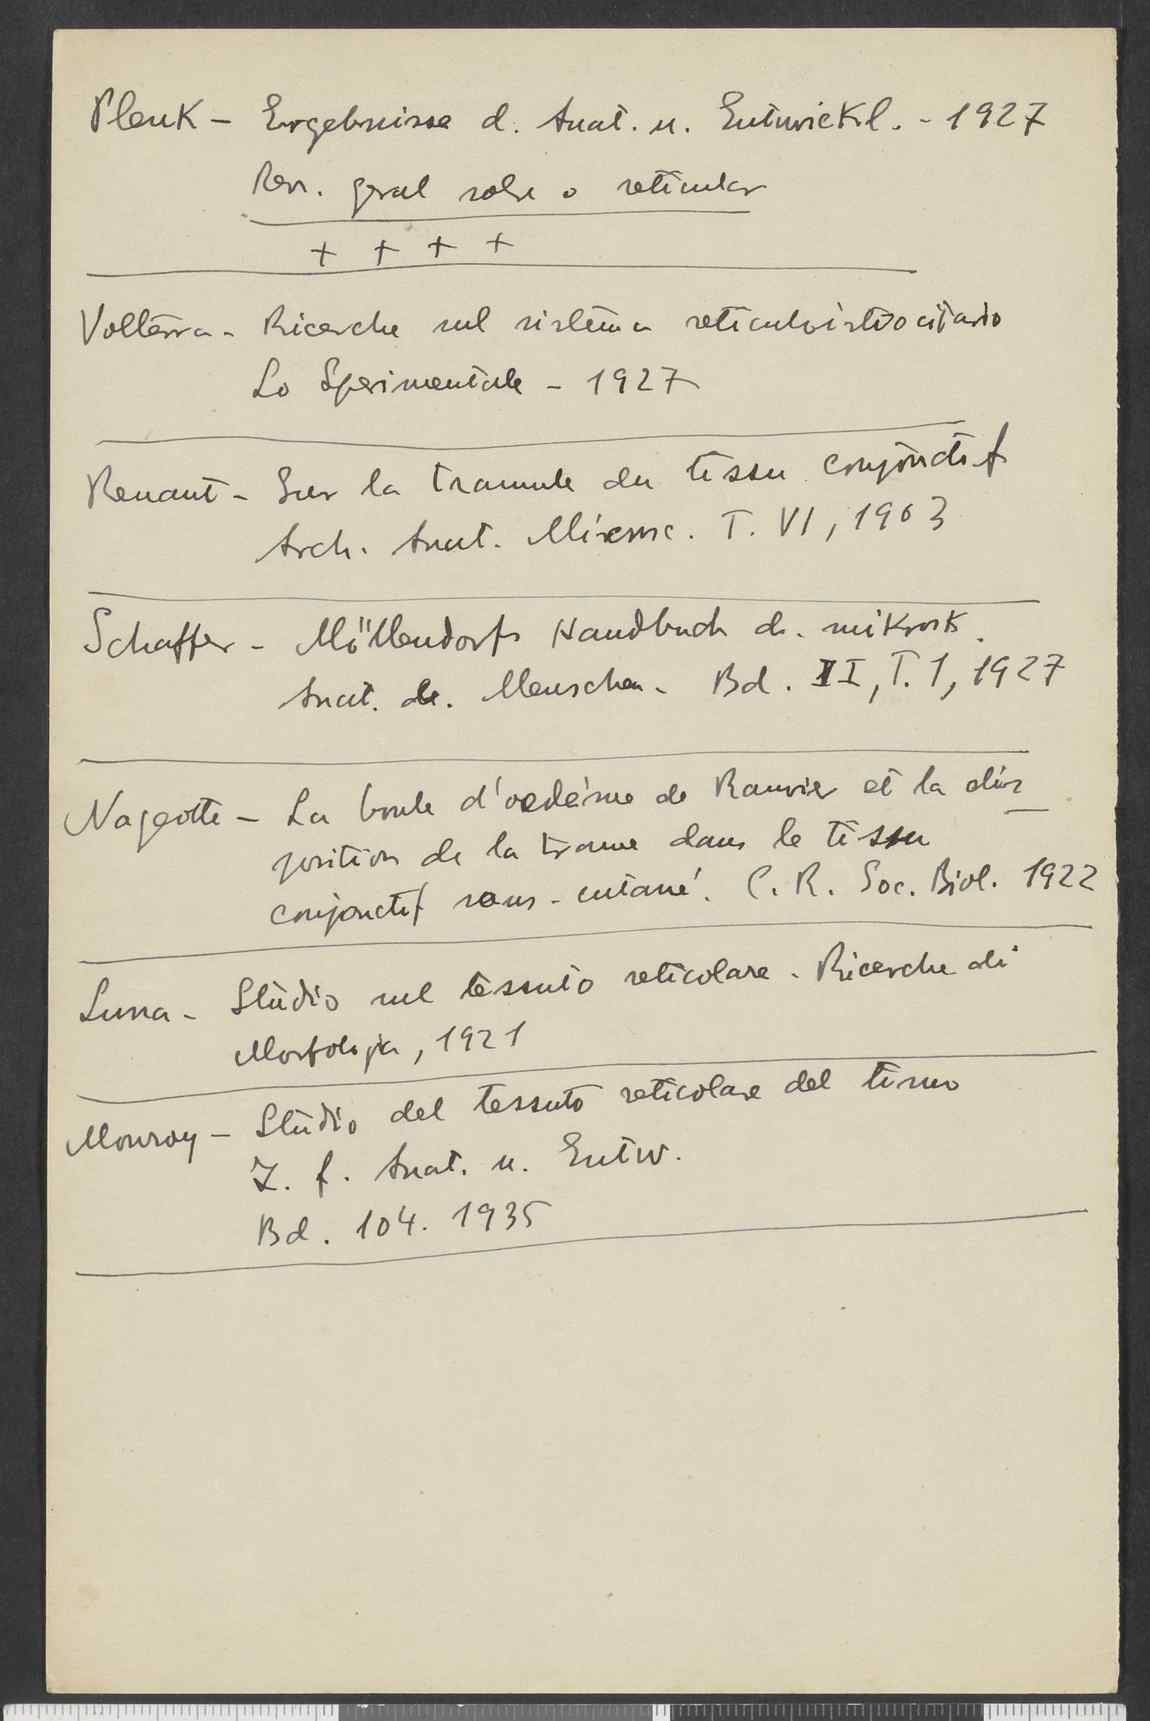 Plenk - Ergebnisse d. Anat. u. Entwickl. - 1927
Rev. geral sobre o reticular
+ + + +
Volterra - Ricerche sul sistema reticuloistiocitario
Lo Sperimentale - 1927
Renaut - Sur la tramule du tissu conjonctif
Arch. Anat. Microsc. T. VI, 1903
Schaffer - Möllendorfs Handbuch d. mikrosk.
Anat. d. Menschen. Bd. II, T. 1, 1927
Nageotte - La boule d'oedème de Ranvier et la dis
position de la trame dans le tissu
conjonctif sous-cutané. C. R. Soc. Biol. 1922
Luna - Studio sul tessuto reticolare. Ricerche di
Morfologia, 1921
Monroy - Studio del tessuto reticolare del timo
Z. f. Anat. u. Entw.
Bd. 104. 1935